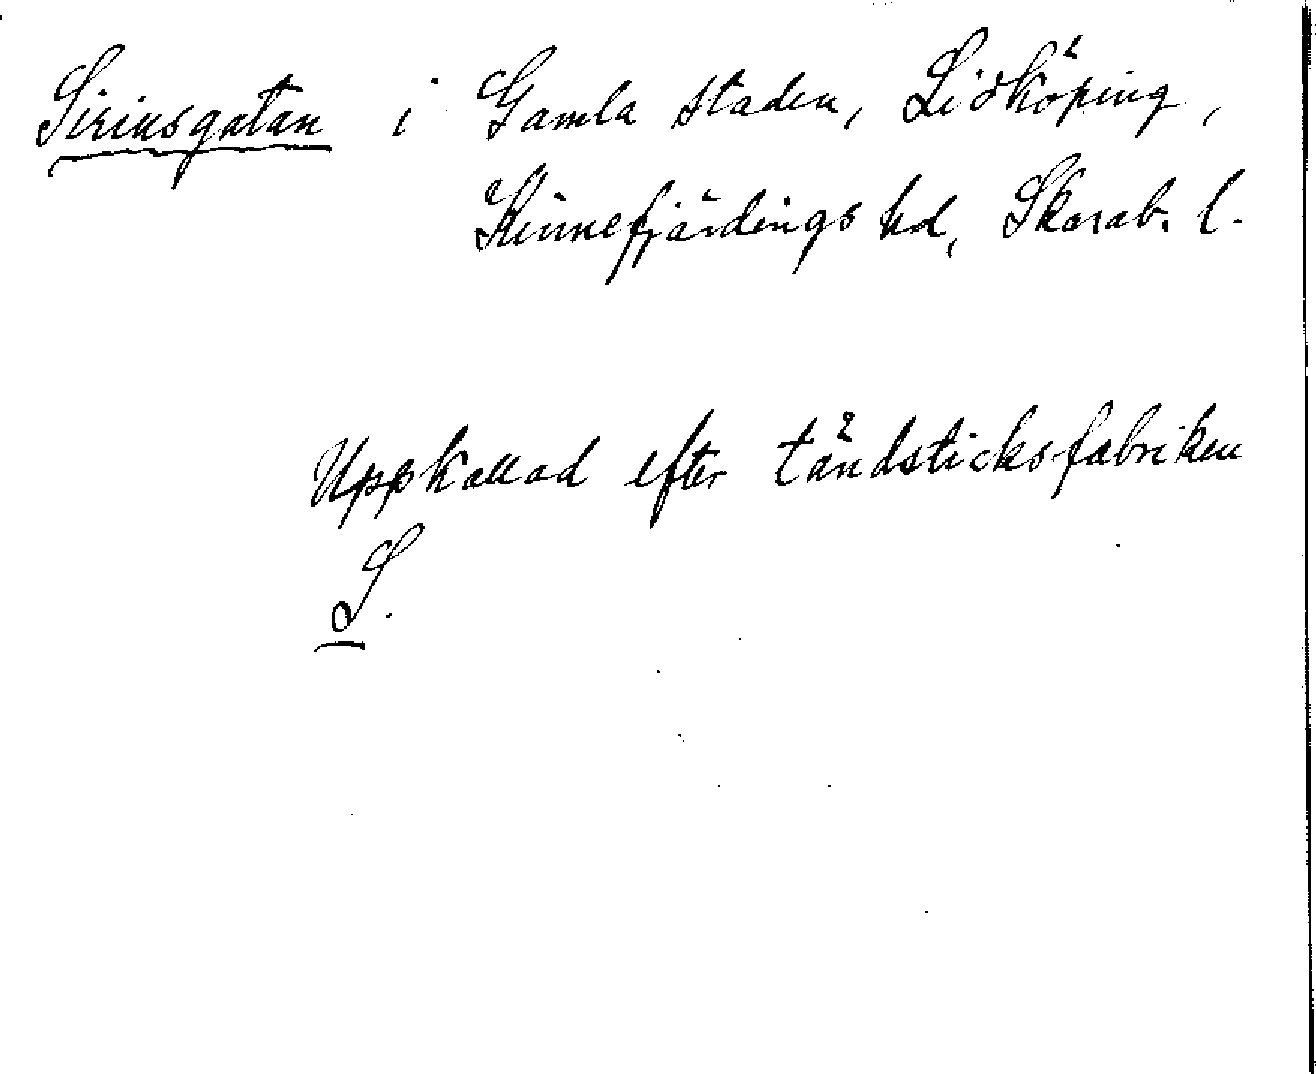 Siriusgatan i Gamla staden, Lidköping,
Kinnefjärdings hd, Skarab. l.
Uppkallad efter tändsticksfabriken
S.